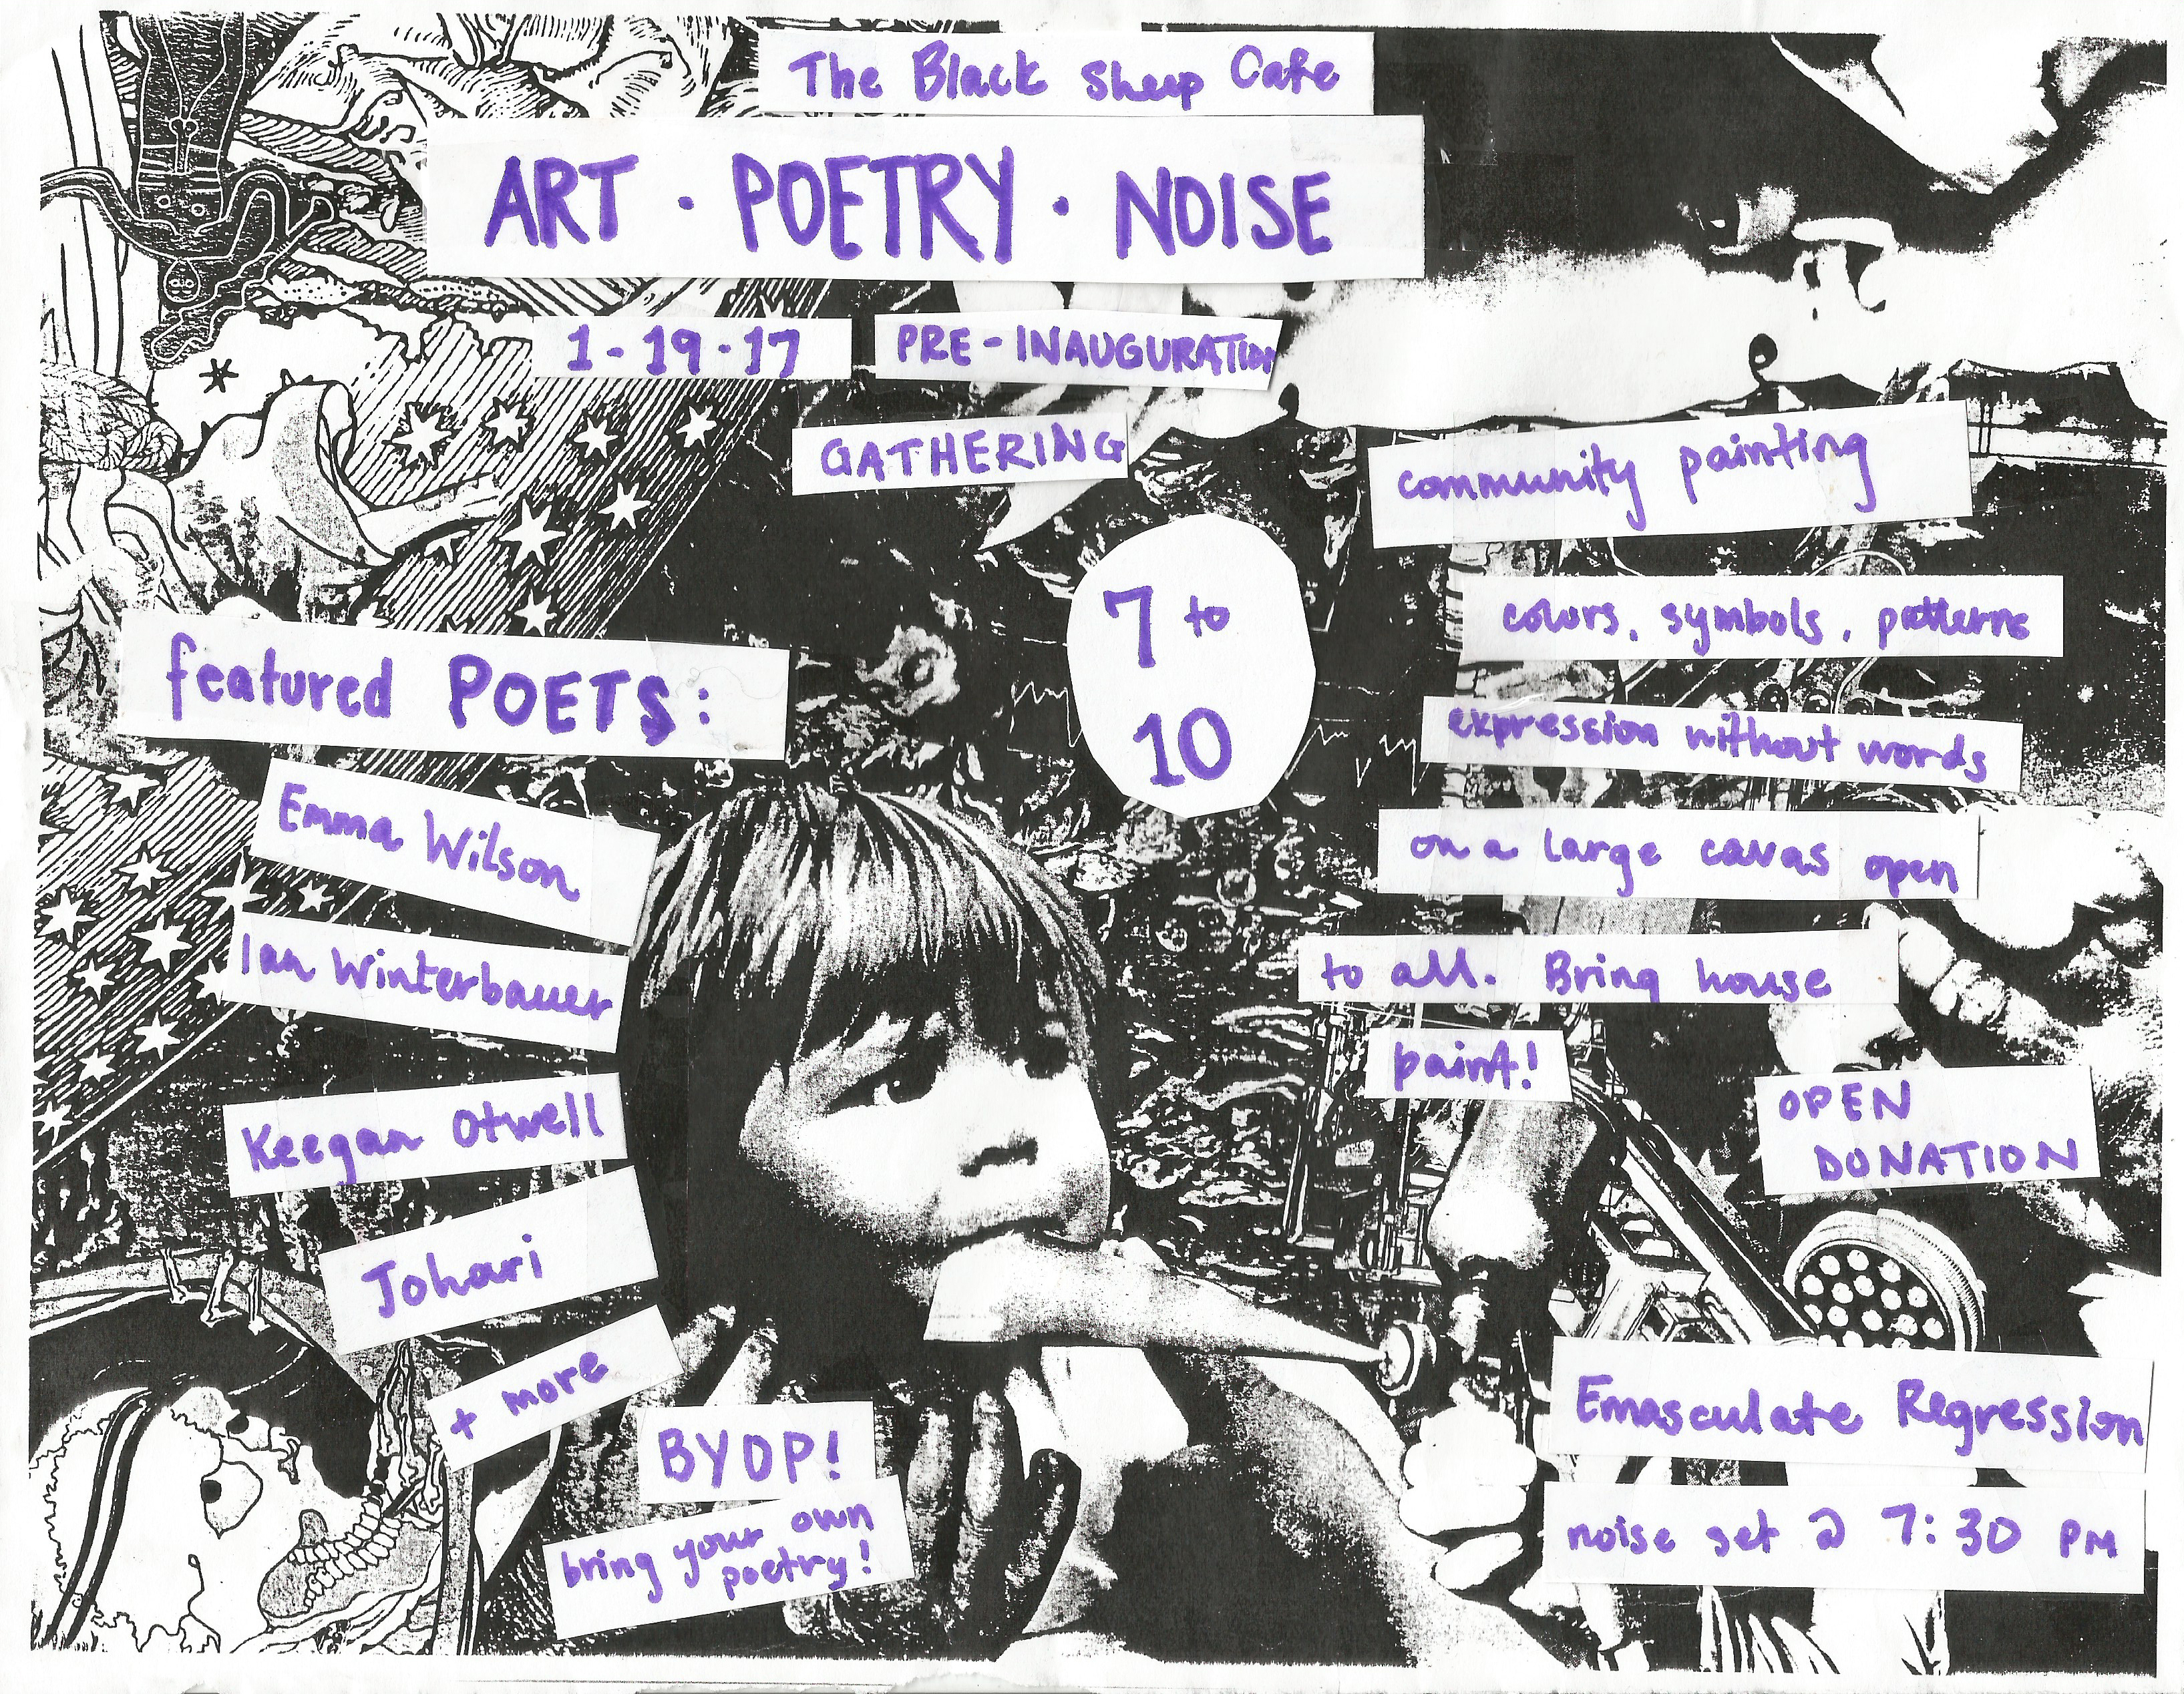 The Black Sheep Cafe
ART · POETRY · NOISE
1-19-17
PRE-INAUGURATION
GATHERING
7 to
10
featured POETS:
Emma Wilson
Ian Winterbauer
Keegan Otwell
Johari
+ more
BYOP!
bring your own
poetry!
community painting
colors, symbols, patterns
expression without words
on a large cavas open
to all. Bring house
paint!
OPEN
DONATION
Emasculate Regression
noise set @ 7:30 PM